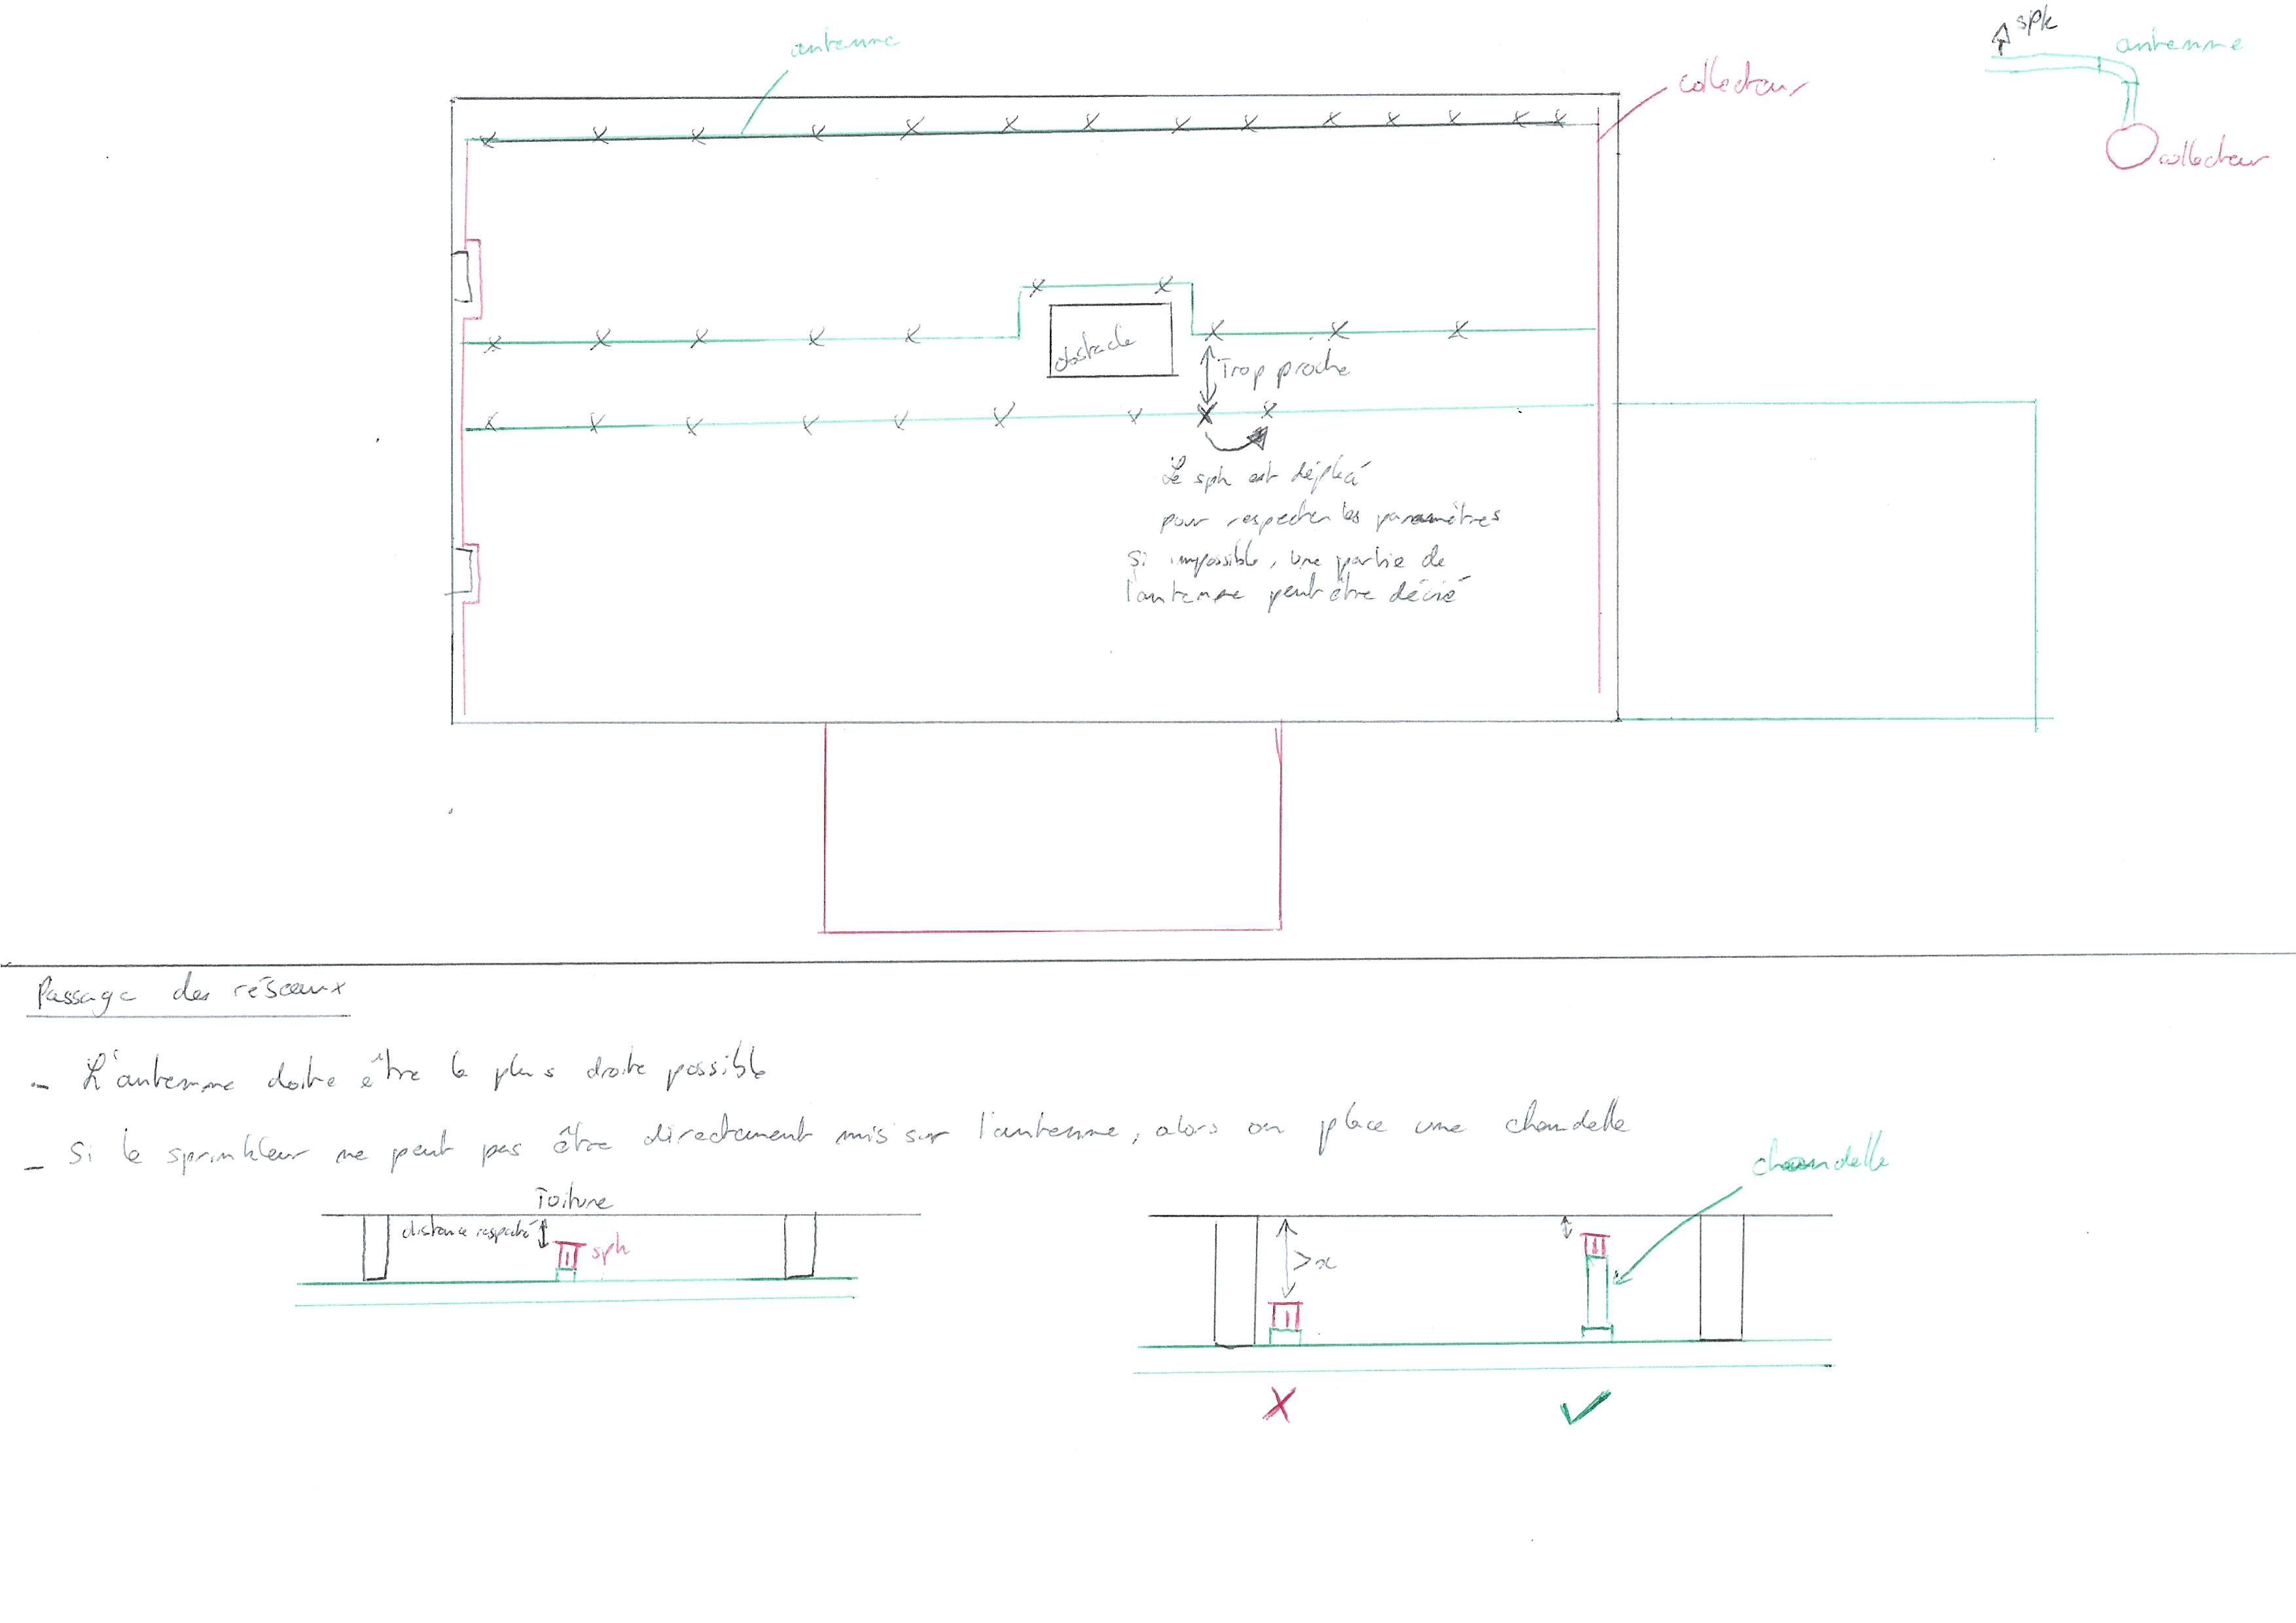 antenne
collecteur
spk
antenne
collecteur
obstacle
Trop proche
Le spk est déplacé
pour respecter les paramètres
Si impossible, une partie de
l'antenne peut être dévié
Passage des réseaux
- L'antenne doitre être le plus droite possible
- Si le sprinkleur ne peut pas être directement mis sur l'antenne, alors on place une chandelle
chandelle
Toiture
distance respecté
spk
> x